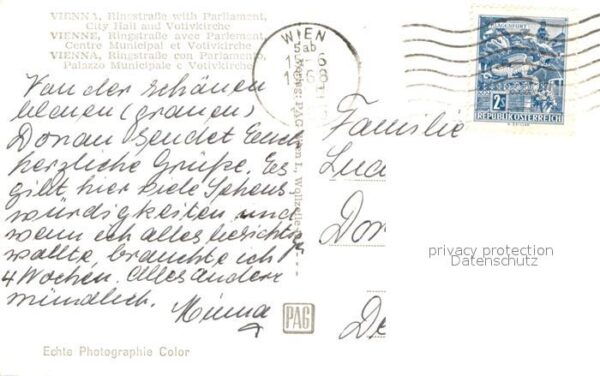 VIENNA, Ringstraße with Parliament,
City Hall and Votivkirche
VIENNE, Ringstraße avec Parlement,
Centre Municipal et Votivkirche
VIENNA, Ringstraße con Parlamento,
Palazzo Municipale e Votivkirche
WIEN
5ab
1968
KLAGENFURT
2S
REPUBLIK ÖSTERREICH
Von der schönen
blauen (grauen)
Donau sendet Euch
herzliche Grüße. Es
gibt hier viele Sehens
würdigkeiten und
wenn ich alles besichtigen
wollte, brauchte ich
4 Wochen. Alles andere
mündlich.
Minna
PAG Wien I., Wollzeile
Familie
Luc
Dor
De
privacy protection
Datenschutz
PAG
Echte Photographie Color